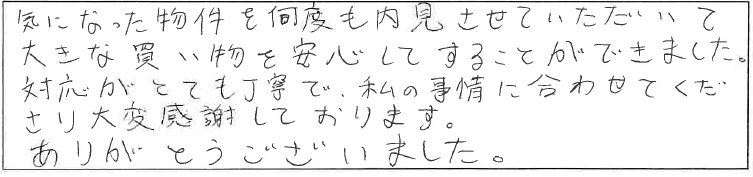 気になった物件を何度も内見させていただいて
大きな買い物を安心してすることができました。
対応がとても丁寧で、私の事情に合わせてくだ
さり大変感謝しております。
ありがとうございました。